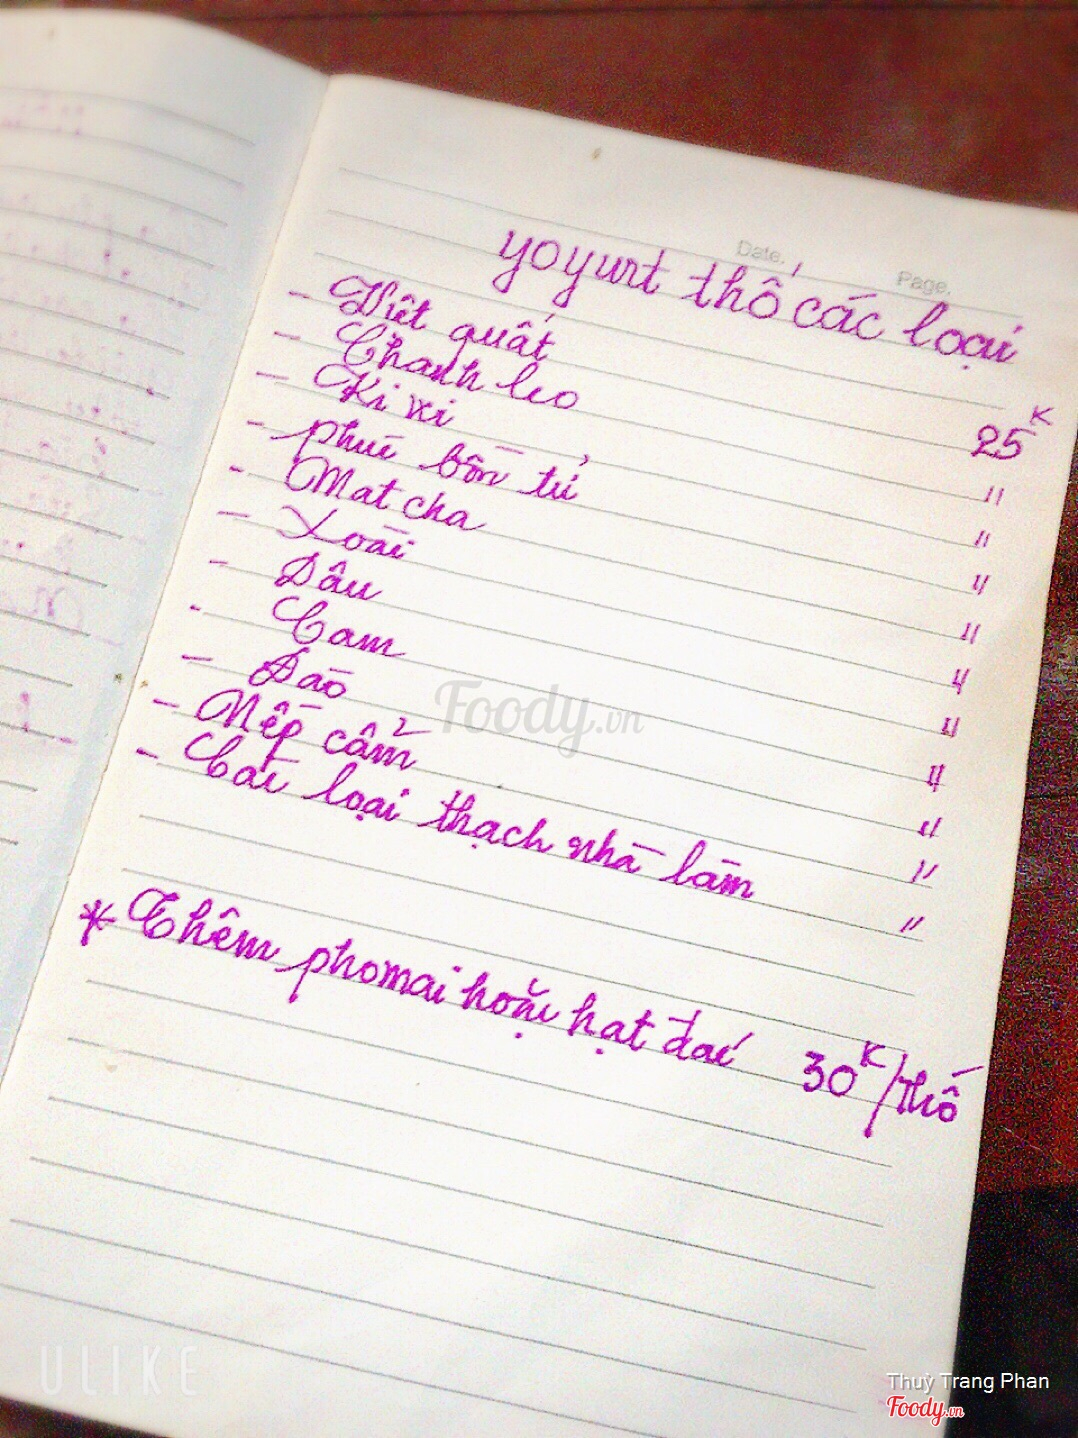 Date.
Page.
yoyurt thố các loại
- Việt quất 25K
- Chanh leo "
- Ki wi "
- phúc bồn tử "
- Mat cha "
- Xoài "
- Dâu "
- Cam "
- Đào "
- Nếp cẩm "
- Các loại thạch nhà làm "
* Thêm phomai hoặc hạt đác 30K/thố
Foody.vn
ULIKE
Thuỳ Trang Phan
Foody.vn